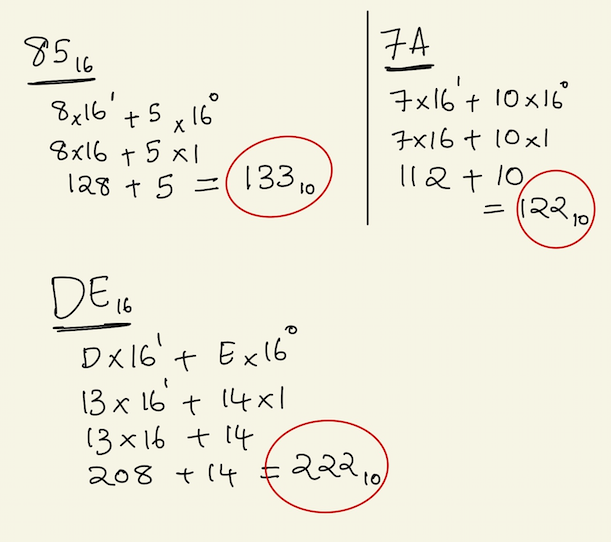 85₁₆
8×16¹ + 5 × 16⁰
8×16 + 5 ×1
128 + 5 = 133₁₀
7A
7×16¹ + 10×16⁰
7×16 + 10×1
112 + 10
= 122₁₀
DE₁₆
D×16¹ + E×16⁰
13×16¹ + 14×1
13×16 + 14
208 + 14 = 222₁₀